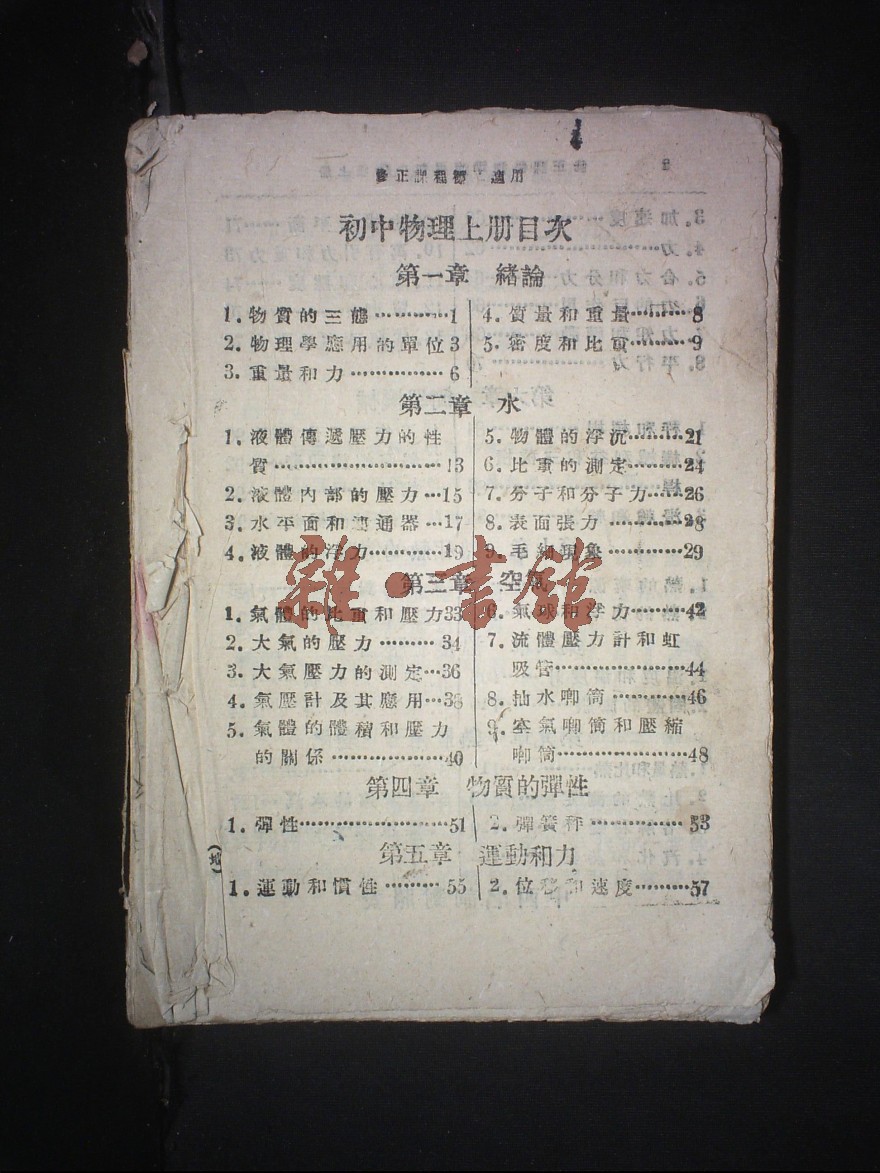 修正課程標準適用
初中物理上册目次
第一章 緒論
1. 物質的三態…………1
2. 物理學應用的單位3
3. 重量和力……………6
4. 質量和重量………8
5. 密度和比重………9
第二章 水
1. 液體傳遞壓力的性
質………………………13
2. 液體內部的壓力…15
3. 水平面和連通器…17
4. 液體的浮力………19
5. 物體的浮沉………21
6. 比重的測定………24
7. 分子和分子力……26
8. 表面張力…………28
9. 毛細現象…………29
第三章 空氣
1. 氣體的比重和壓力33
2. 大氣的壓力………34
3. 大氣壓力的測定…36
4. 氣壓計及其應用…38
5. 氣體的體積和壓力
的關係………………40
6. 氣球和浮力………42
7. 流體壓力計和虹
吸管…………………44
8. 抽水唧筒…………46
9. 空氣唧筒和壓縮
唧筒…………………48
第四章 物質的彈性
1. 彈性…………………51
2. 彈簧秤……………53
第五章 運動和力
1. 運動和慣性………55
2. 位移和速度………57
雜·書館